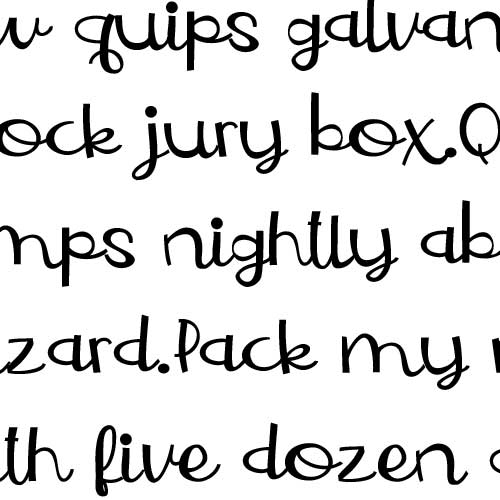 w quips galvan
ock jury box.Q
mps nightly ab
zard.Pack my
th five dozen